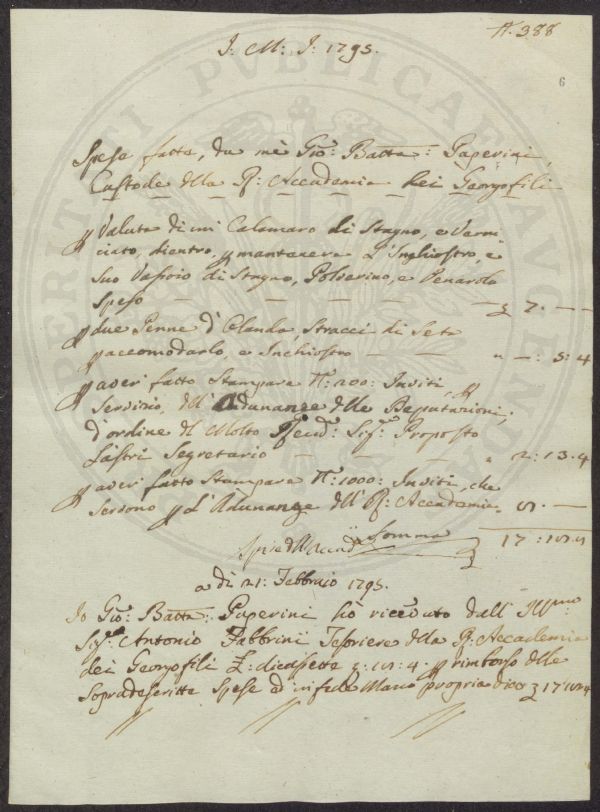 N. 388
J: M: J: 1795.
6
PERITI PVBLICAE AVGENDAE
Spese fatte, da mè Gio: Batta: Paperini,
Custode della R: Accademia dei Georgofili
p Valuta di un Calamaro di Stagno, e Verni
ciato, dientro, p mantenere L'Inghiostro, e
Suo Vassoio di Stagno, Polverino, e Penarolo
Speso £ 7. —
p due Penne d'Olanda Stracci di Seta
p accomodarlo, e Inchiostro — — " — : 5 : 4
p averi fatto Stampare N: 200: Inviti, p
Servizio, dell' Adunanze delle Deputazioni,
d'ordine del Molto Sig: Proposto
Lastri Segretario — — " 2 : 13 . 4
p averi fatto Stampare N: 1000: Inviti, che
Servono p L'Adunanze dell' R: Accademia "
Somma 17 :
a dì 21: Febbraio 1795.
Io Gio: Batta: Paperini hò riceuto dall' Illmo
Sig: Antonio Fabbrini Tesoriere della R: Accademia
dei Georgofili £: diciasette p rimborso delle
Sopradescritte Spese ed in fede Mano propria dico £ 17